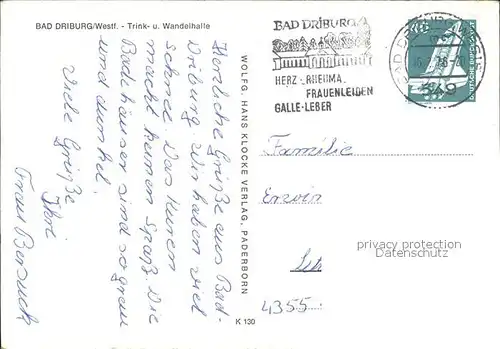 BAD DRIBURG/Westf. - Trink- u. Wandelhalle
Herzliche Grüße aus Bad-
Driburg. Wir haben viel
Schnee. Das Kuren
macht keinen Spaß. Die
Badehäuser sind so grau
und dunkel.
Viele Grüße
Ihre
Frau
WOLFG. HANS KLOCKE VERLAG, PADERBORN
K 130
BAD DRIBURG
HERZ-RHEUMA
FRAUENLEIDEN
GALLE-LEBER
349
DEUTSCHE BUNDESPOST
Familie
Erwin
privacy protection
Datenschutz
4355